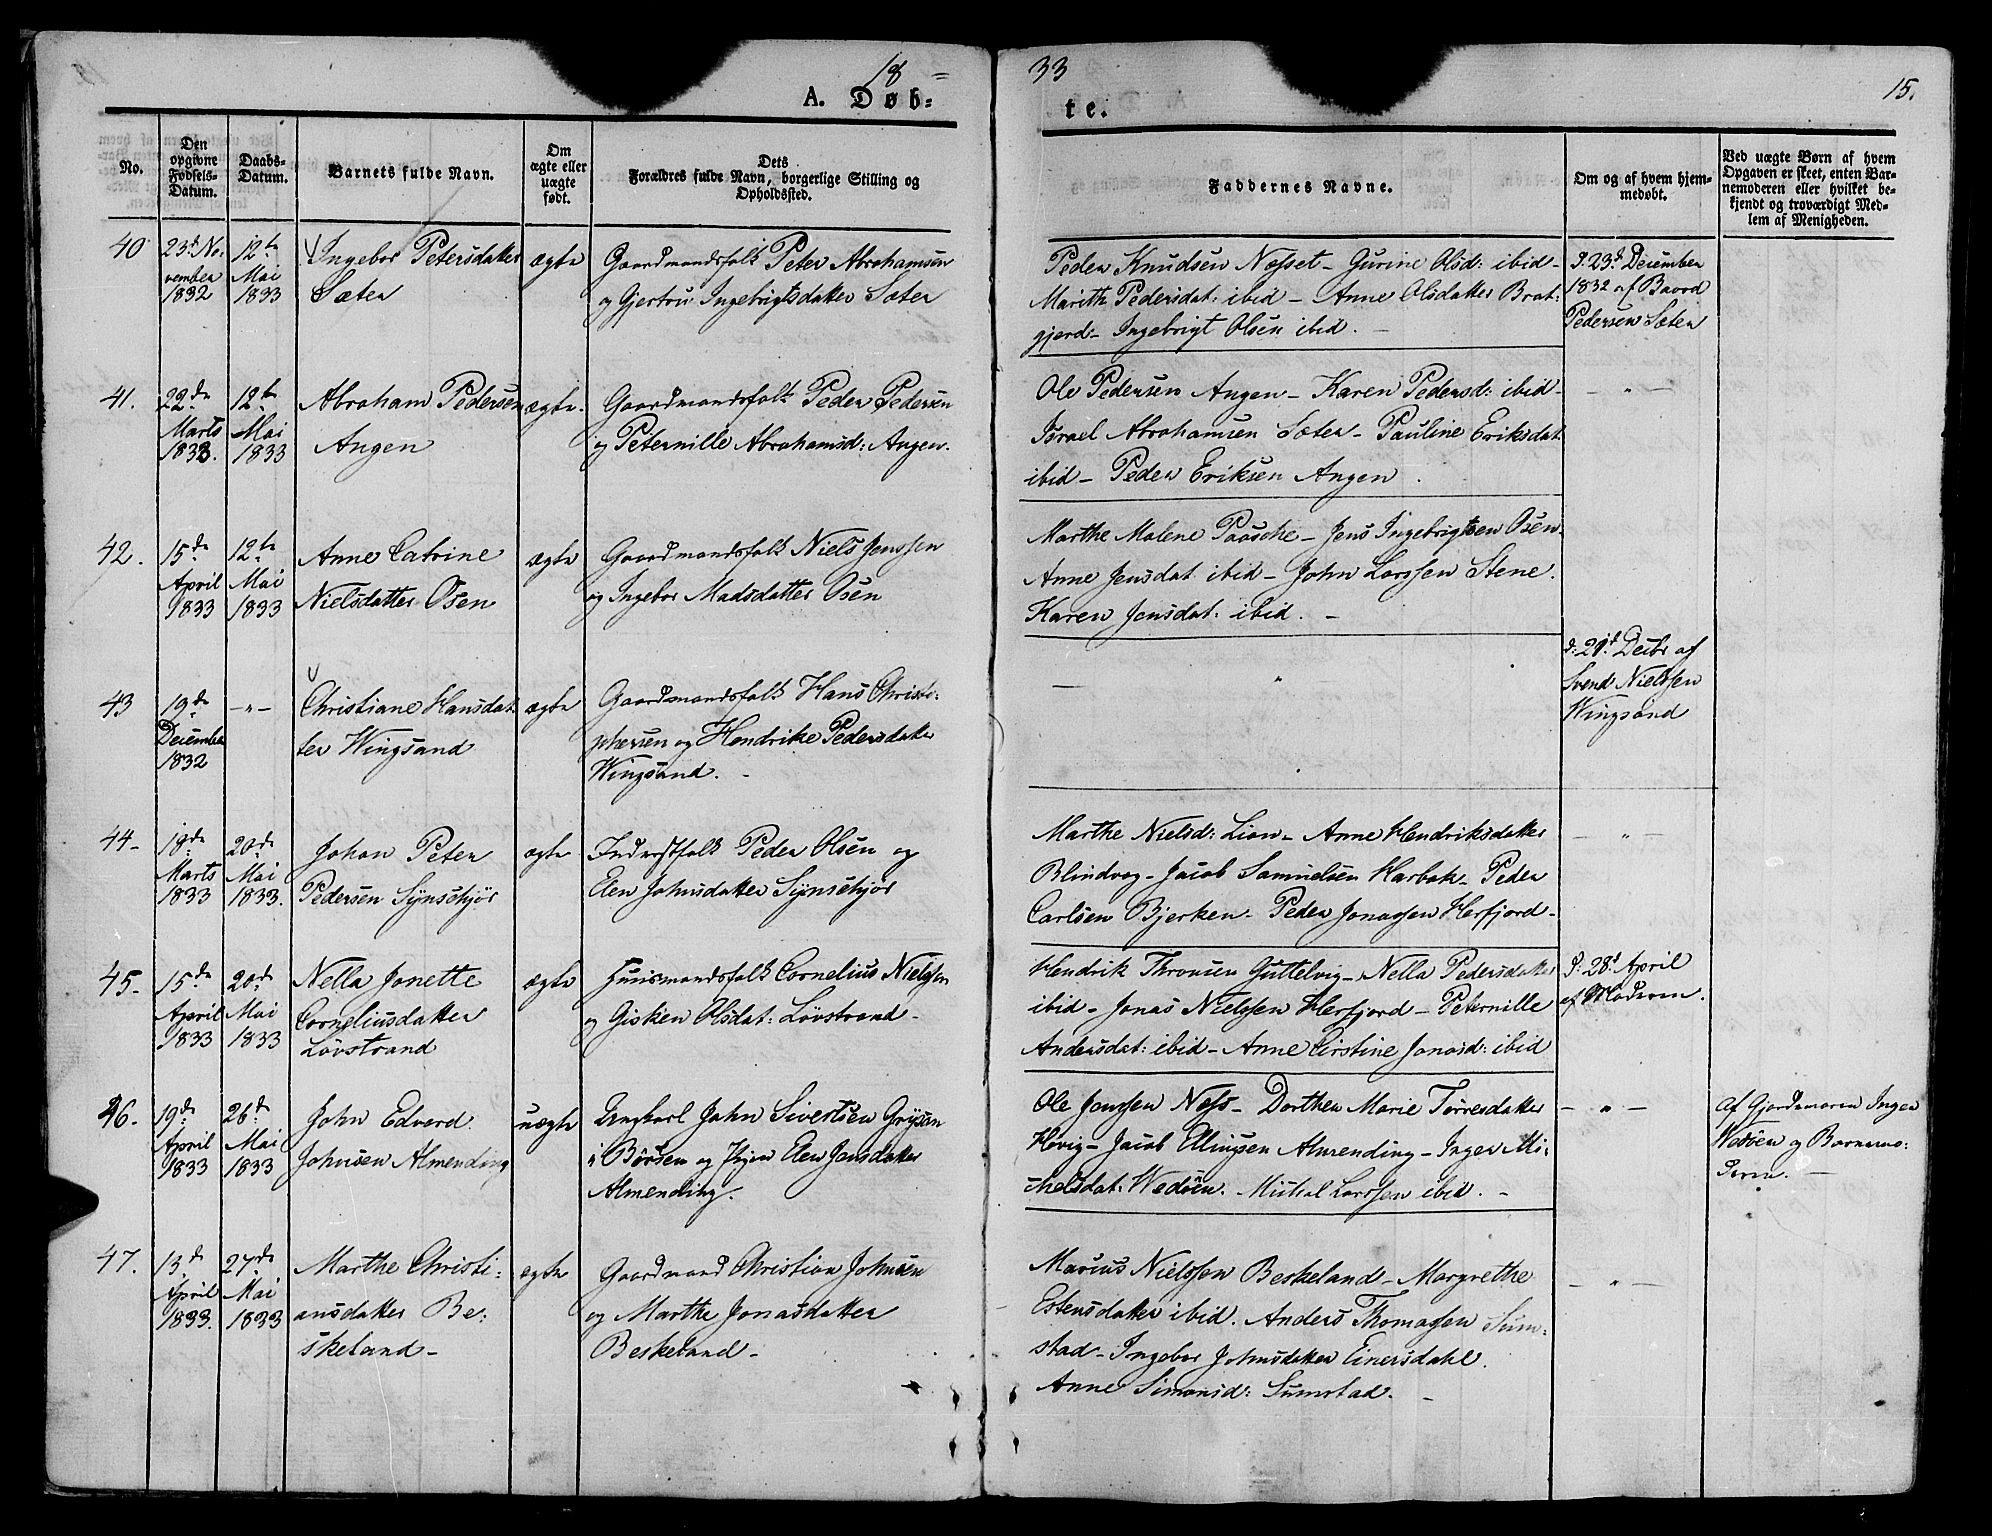 18
33
15.
A. Døb-
te.
No.
Den
opgivne
Fødsels-
Datum.
Daabs-
Datum.
Barnets fulde Navn.
Om
ægte eller
uægte
født.
Dets
Forældres fulde Navn, borgerlige Stilling og
Opholdssted.
Faddernes Navne.
Om og af hvem hjem-
medøbt.
Ved uægte Børn af hvem
Opgaven er skeet, enten Bar-
nemoderen eller hvilket be-
kjendt og troværdigt Med-
lem af Menigheden.
40
23d No-
vember
1832
12te
Mai
1833
Ingebor Petersdatter
Sæter
ægte
Gaardmandsfolk Peter Abrahamsen
og Gjertru Ingebrigtsdatter Sæter
Peder Knudsen Næsset - Gurine Olsd: ibid -
Marith Pedersdat: ibid - Anne Olsdatter Brat-
gjerd - Ingebrigt Olsen ibid. -
d. 23d December
1832 af Baard
Pedersen Sæter
41.
22de
Marts
1833.
12te
Mai
1833
Abraham Pedersen
Angen
ægte.
Gaardmandsfolk Peder Pedersen
og Peternille Abrahamsd: Angen.
Ole Pedersen Angen - Karen Pedersd: ibid -
Israel Abrahamsen Sæter - Pauline Eriksdat
ibid - Peder Eriksen Angen .
- " -
42.
15de
April
1833
12te
Mai
1833
Anne Catrine
Nielsdatter Osen
ægte
Gaardmandsfolk Niels Jenssen
og Ingebor Madsdatter Osen
Marthe Malene Paasche - Jens Ingebrigtsen Osen.
Anne Jensdat ibid - John Larssen Stene.
Karen Jensdat: ibid. -
43
19de
December
1832
-"-
Christiane Hansdat
ter Wingsand
ægte
Gaardmandsfolk Hans Christo-
phersen og Hendrike Pedersdatter
Wingsand. -
- "
d: 29d Decbr af
Svend Nielssen
Wingsand
44-
18de
Marts
1833
20de
Mai
1833.
Johan Peter
Pedersen Synsehjør
ægte
Inderstfolk Peder Olsen og
Elen Johnsdatter Synsehjør
Marthe Nielsd: Lion - Anne Hendriksdatter
Blindvog - Jacob Samuelsen Harbak - Peder
Carlsen Bjerken - Peder Jonassen Herfjord -
- " -
45-
15de
April
1833
20de
Mai
1833
Nella Jonette
Corneliusdatter
Lövstrand
ægte
Huusmandsfolk Cornelius Nielssen
og Gisken Olsdat: Lövstrand -
Hendrik Thronsen Guttelvig - Nella Pedersdatter
ibid - Jonas Nielssen Herfjord - Peternille
Andersdat: ibid - Anne Cirstine Jonasd: ibid
d: 28d April
af Moderen.
46.
19de
April
1833
26de
Mai
1833
John Edvard
Johnsen Almending
uægte
Ungkarl John Sivertsen Grysan
i Börsen og Pigen Elen Jensdatter
Almending.
Ole Jenssen Næss - Dorthea Marie Torresdatter
Hövig - Jacob Ellingsen Almending - Inger Mi-
chelsdat: Wedöen. Michal Larssen ibid. -
- " -
Af Gjordemoren Inger
Wedöen og Barnemo-
deren. -
47.
13de
April
1833.
27de
Mai
1833
Marthe Christi-
ansdatter Be-
skeland -
ægte
Gaardmand Christian Johnsen
og Marthe Jonasdatter
Beskeland -
Marius Nielssen Beskeland - Margrethe
Estensdatter ibid. Anders Thomassen Sum-
stad - Ingebor Johnsdatter Einersdahl.
Anne Simonsd: Sumstad. -
- " -